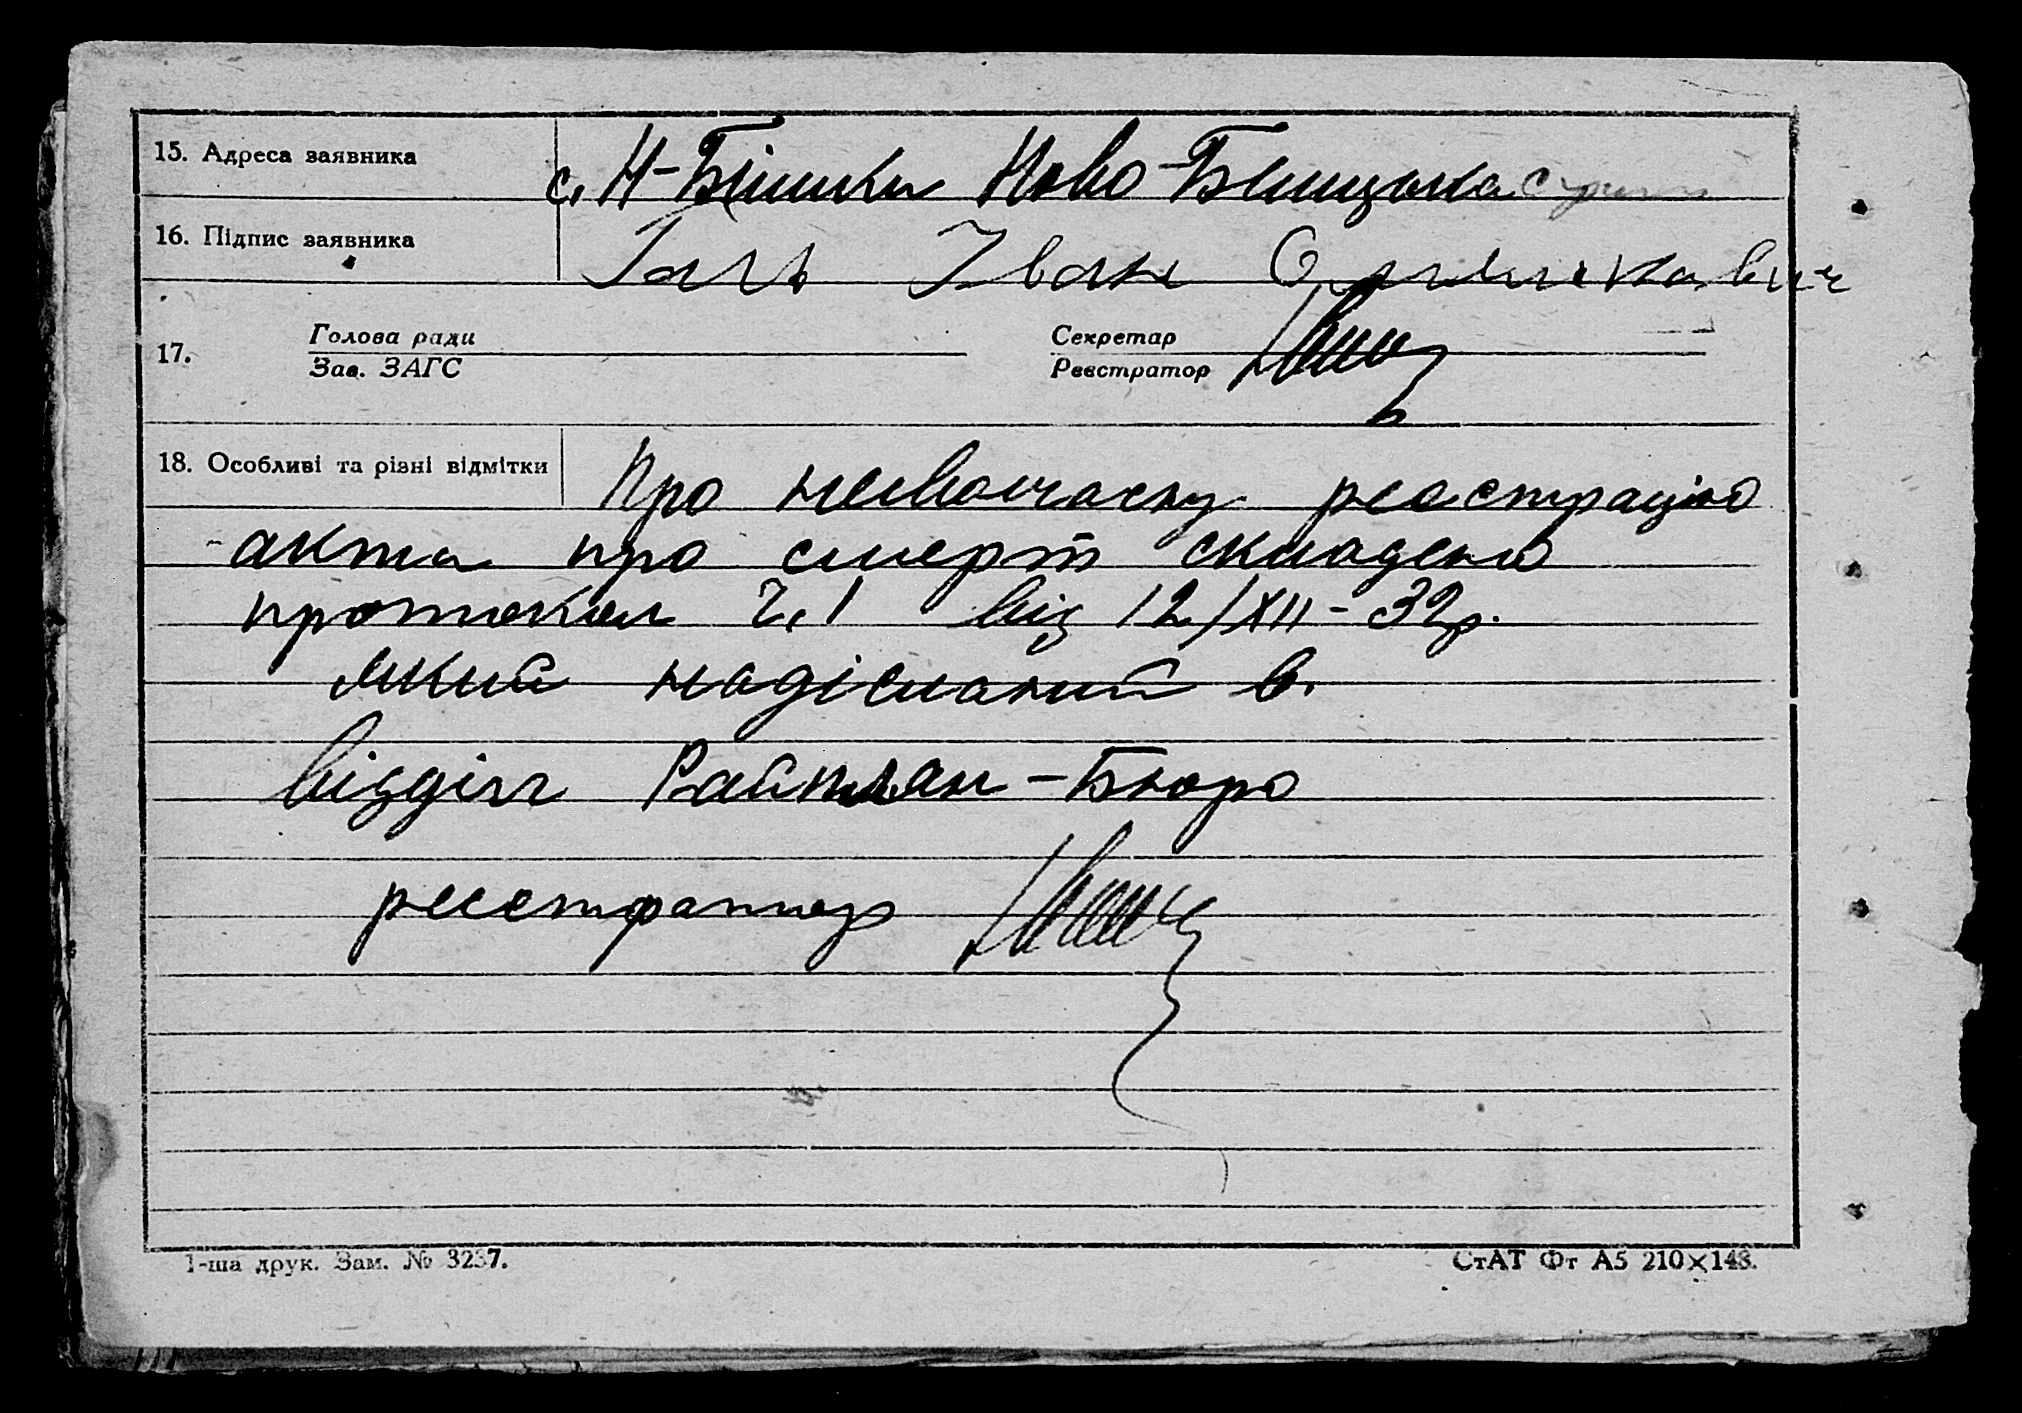 15. Адреса заявника с. Н-Бішкин Ново-Бишцька
16. Підпис заявника Галь Іван
Голова ради Секретар
17.
Зав. ЗАГС Реєстратор
18. Особливі та різні відмітки Про невоичасну реєстрацію
акта про смерт складено
протокол Ч. 1 від 12/XII-32р.
який надісланий в.
відділ Райплан-Бюро
реєстратор
1-ша друк. Зам. № 3237. СтАТ Фт А5 210×148.